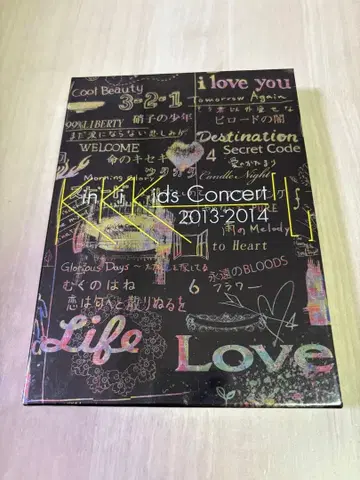 Cool Beauty
3-2-1
i love you
Tomorrow Again
硝子の少年
99%LIBERTY
ビロードの闇
まだ涙にならない悲しみが
Destination
WELCOME
Secret Code
命のキセキ
4
愛のかたまり
Candle Night
Morning Glory
KinKi Kids Concert
2013-2014
「L」
雨のMelody
to Heart
Glorious Days
永遠のBLOODS
むくのはね
6
フラワー
恋は匂へと散りぬるを
Life
Love